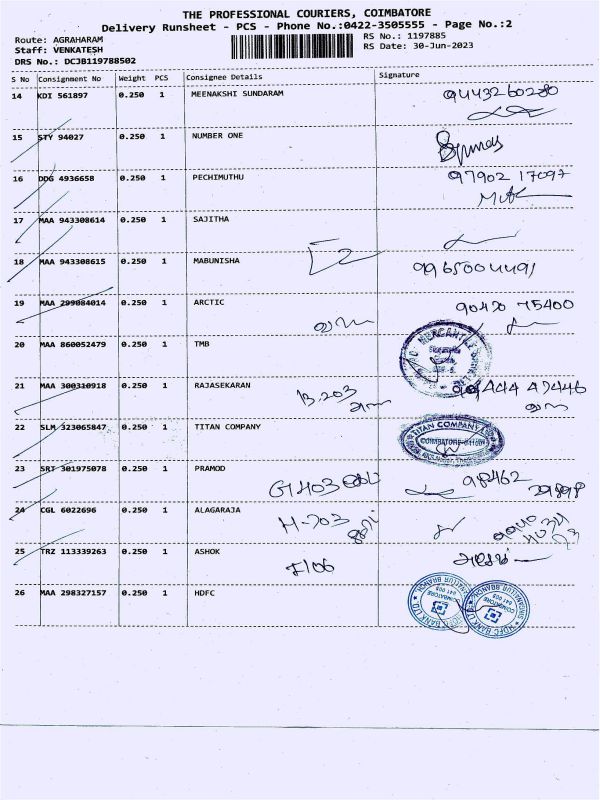 THE PROFESSIONAL COURIERS, COIMBATORE
Delivery Runsheet - PCS - Phone No.:0422-3505555 - Page No.:2
Route: AGRAHARAM
RS No.: 1197885
Staff: VENKATESH
RS Date: 30-Jun-2023
DRS No.: DCJB119788502
S No Consignment No Weight PCS Consignee Details Signature
14 KDI 561897 0.250 1 MEENAKSHI SUNDARAM 9443260280
15 STY 94027 0.250 1 NUMBER ONE
16 DDG 4936658 0.250 1 PECHIMUTHU 97902 17097
17 MAA 943308614 0.250 1 SAJITHA
18 MAA 943308615 0.250 1 MABUNISHA 9965004491
19 MAA 299084014 0.250 1 ARCTIC 90420 75400
20 MAA 860052479 0.250 1 TMB MERCANTILE
21 MAA 300310918 0.250 1 RAJASEKARAN B-203
22 SLM 323065847 0.250 1 TITAN COMPANY TITAN COMPANY
23 SRT 301975078 0.250 1 PRAMOD G1403 98462
24 CGL 6022696 0.250 1 ALAGARAJA H-703
25 TRZ 113339263 0.250 1 ASHOK F106
26 MAA 298327157 0.250 1 HDFC HDFC BANK LTD COIMBATORE